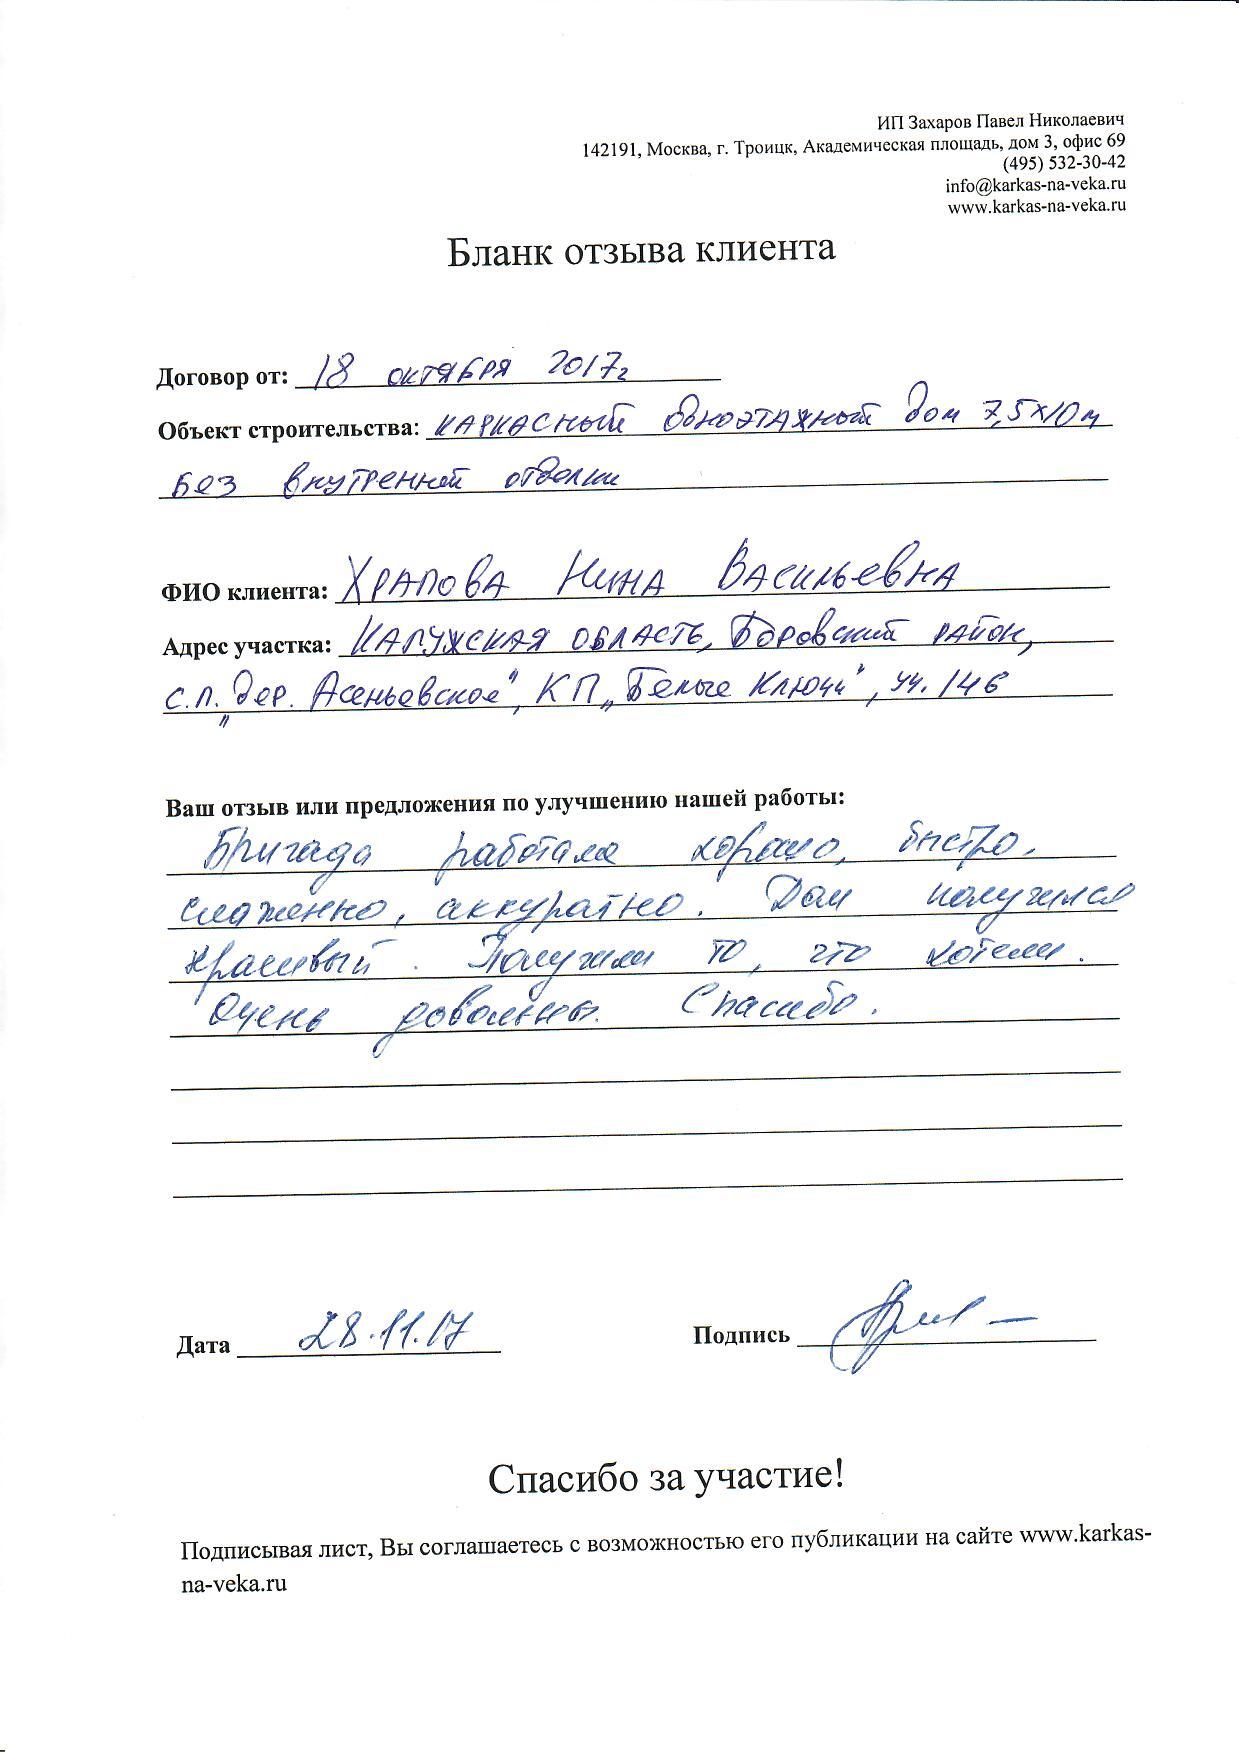 ИП Захаров Павел Николаевич
142191, Москва, г. Троицк, Академическая площадь, дом 3, офис 69
(495) 532-30-42
info@karkas-na-veka.ru
www.karkas-na-veka.ru
Бланк отзыва клиента
Договор от: 18 октября 2017г
Объект строительства: каркасный одноэтажный дом 7,5х10м
без внутренней отделки
ФИО клиента: Храпова Нина Васильевна
Адрес участка: Калужская область, Боровский район,
с.п. „дер. Асеньевское", КП „Белые Ключи", уч. 146
Ваш отзыв или предложения по улучшению нашей работы:
Бригада работала хорошо, быстро,
слаженно, аккуратно. Дом получился
красивый. Получили то, что хотели.
Очень довольны. Спасибо.
Дата 28.11.17 Подпись
Спасибо за участие!
Подписывая лист, Вы соглашаетесь с возможностью его публикации на сайте www.karkas-
na-veka.ru